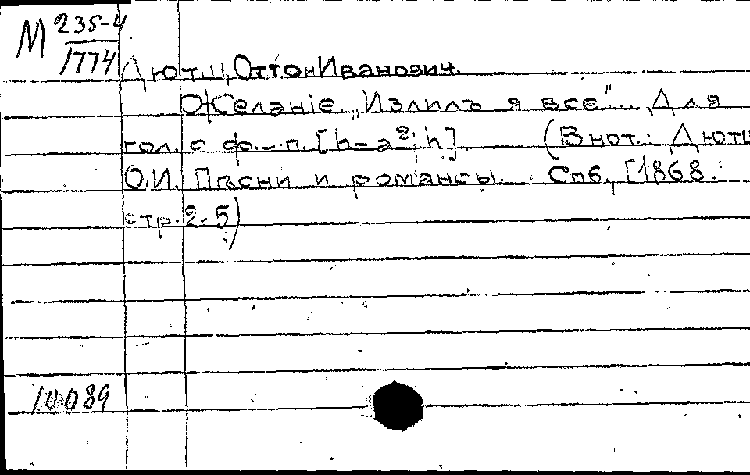 М 235-4
1774
Дютш, Оттон Иванович.
Желание. „Излилъ я все"... Для
гол. с ф.-п. [h-a²; h]. (В нот.: Дютш
О.И. Песни и романсы. Спб., [1868.
стр. 2-5)
10089